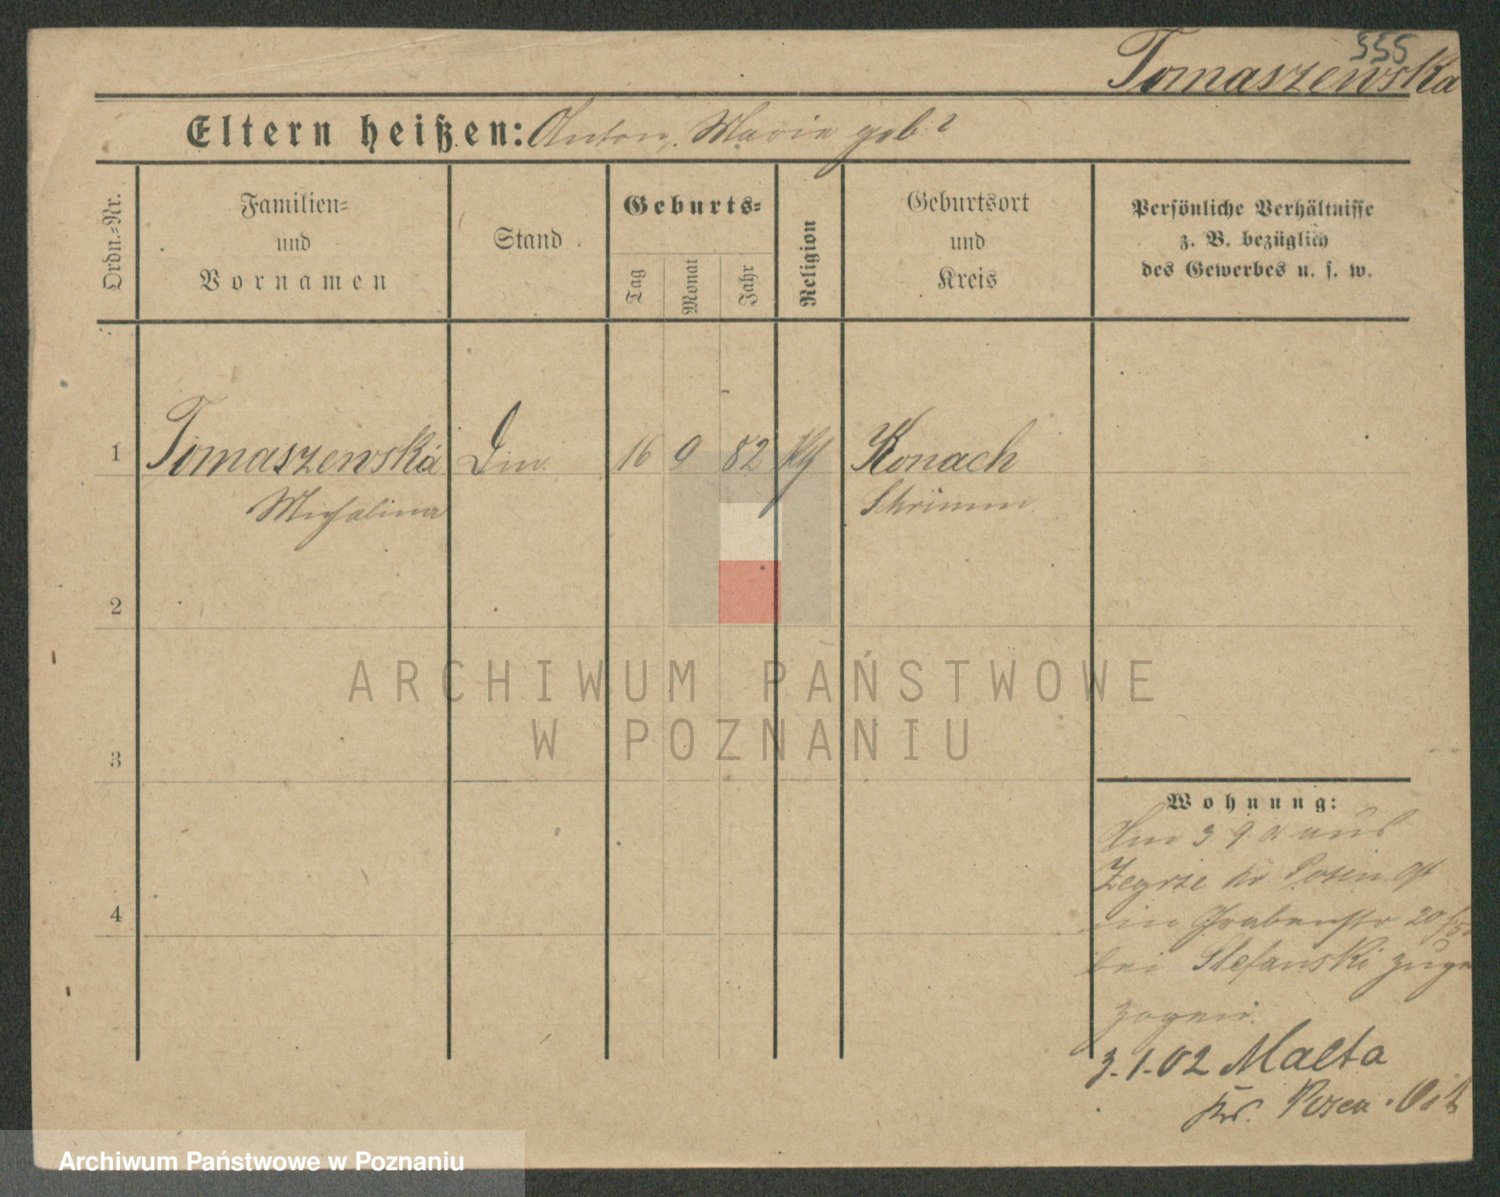 555
Tomaszewska
Eltern heißen: Anton, Marie geb. ?
Ordn.-Nr.
Familien-
und
Vornamen
Stand
Geburts-
Tag
Monat
Jahr
Religion
Geburtsort
und
Kreis
Persönliche Verhältnisse
z. B. bezüglich
des Gewerbes u. s. w.
1 Tomaszewska 16 9 82 Konach
Michalina Schrimm
2
3
4
ARCHIWUM PAŃSTWOWE
W POZNANIU
Wohnung:
Am 3 9. aus
Zegrze Kr. Posen Ost
Grabenstr 20
bei Stefanski zuge
zogen.
3.1.02 Malta
Kr. Posen. Ost
Archiwum Państwowe w Poznaniu